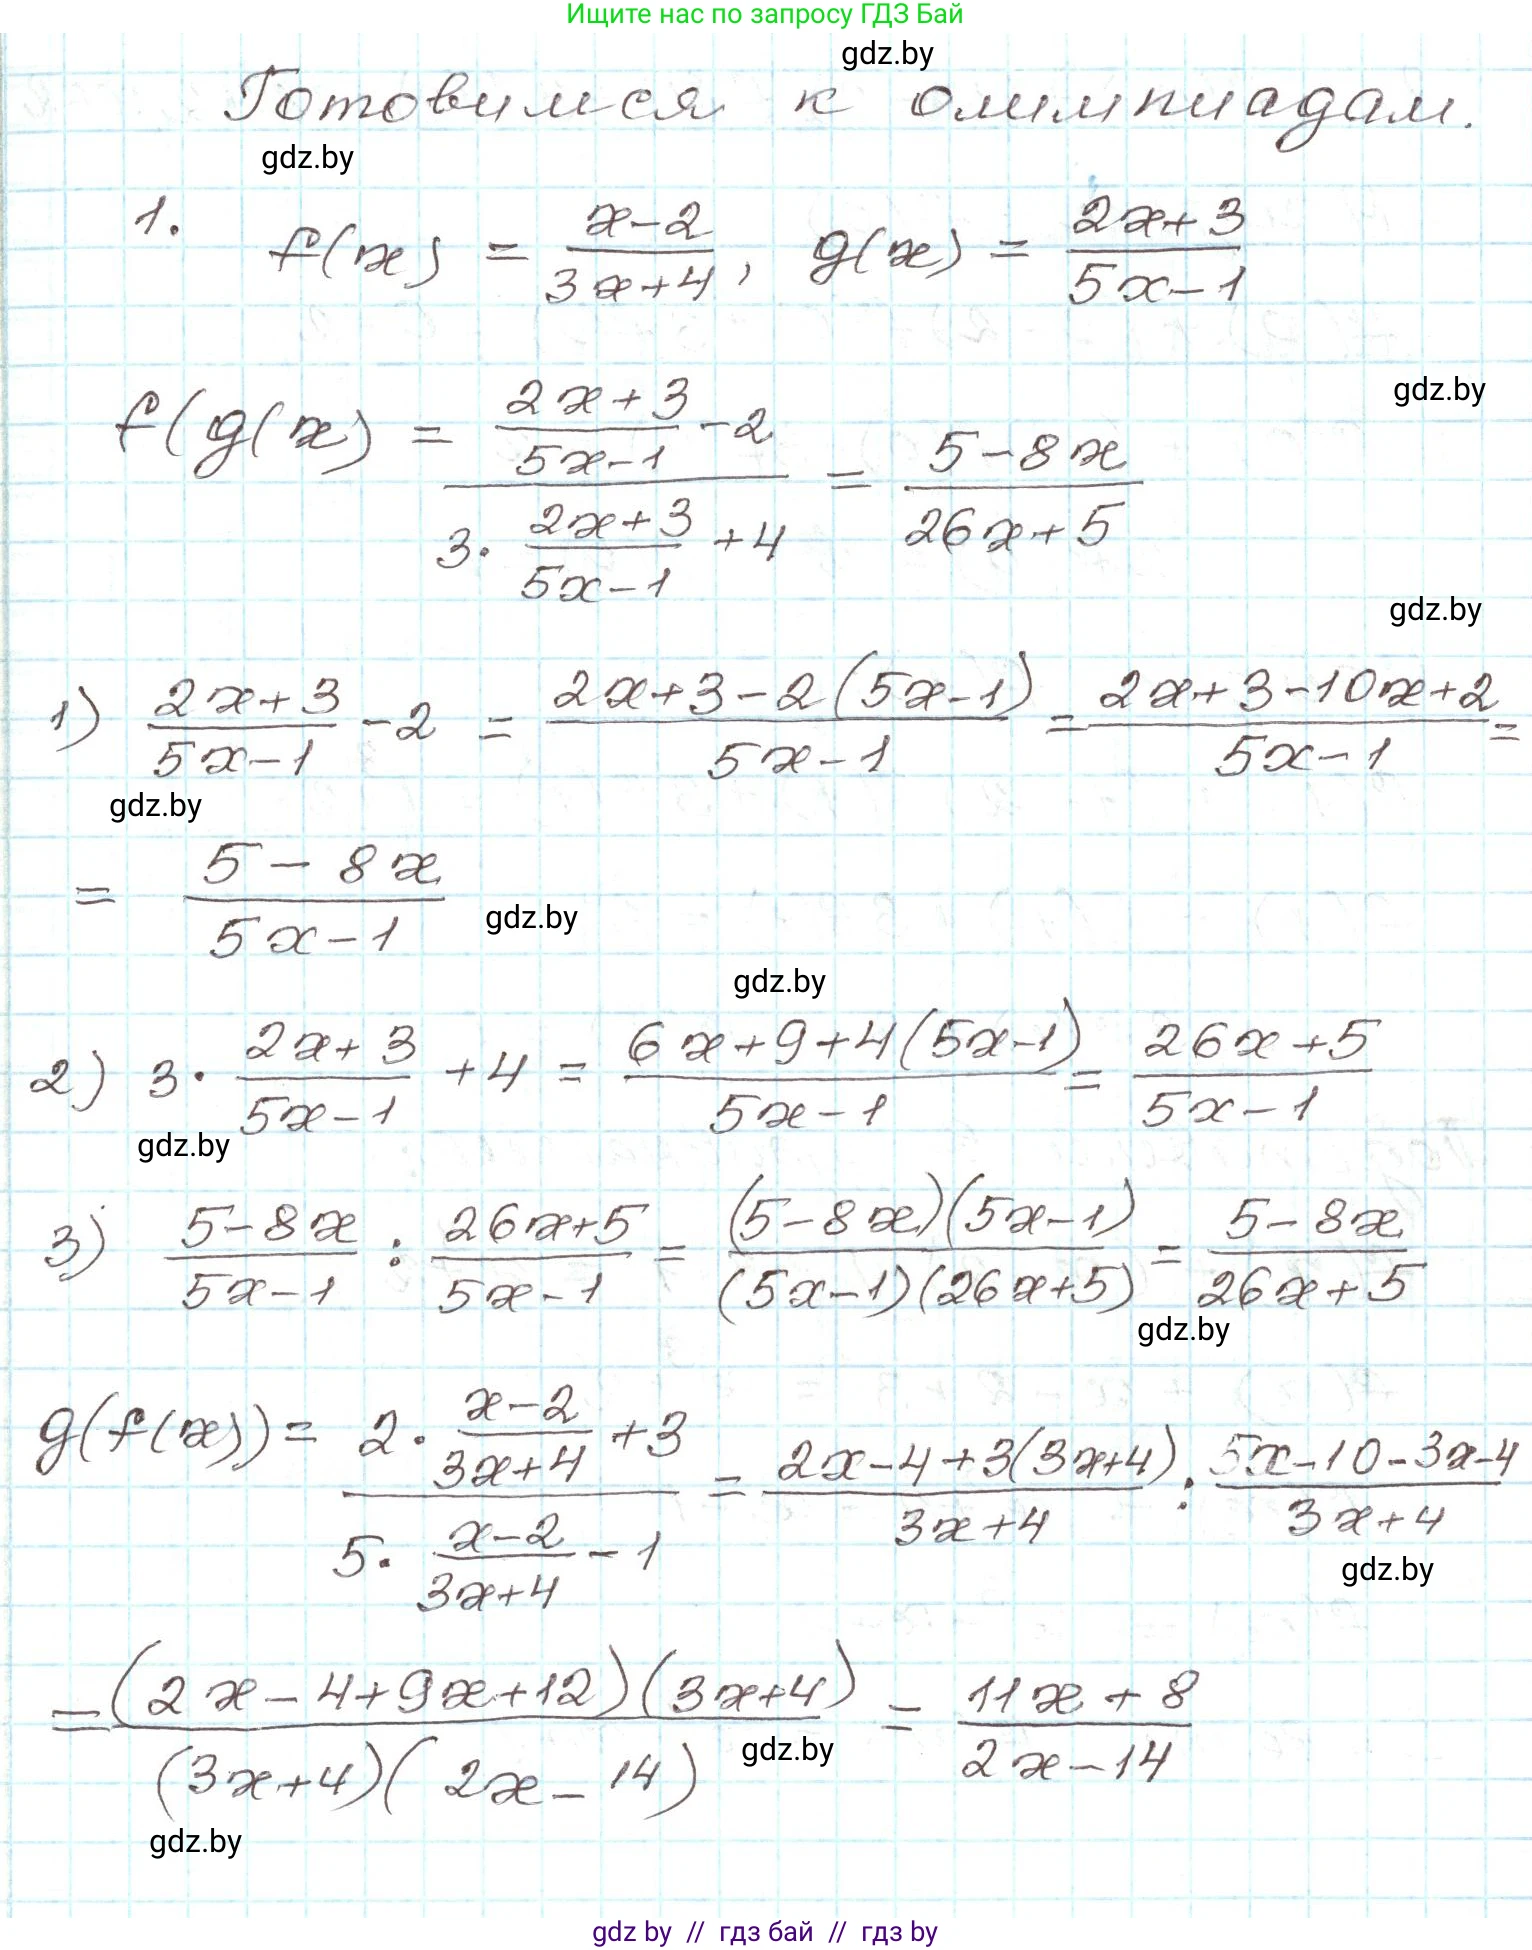 Ищите нас по запросу ГДЗ Бай
gdz.by
Готовимся к олимпиадам.
gdz.by
1. f(x) = (x-2)/(3x+4), g(x) = (2x+3)/(5x-1)
gdz.by
f(g(x) = ((2x+3)/(5x-1) - 2)/(3·(2x+3)/(5x-1) + 4) = (5-8x)/(26x+5)
gdz.by
1) (2x+3)/(5x-1) - 2 = (2x+3-2(5x-1))/(5x-1) = (2x+3-10x+2)/(5x-1) =
gdz.by
= (5-8x)/(5x-1)
gdz.by
gdz.by
2) 3·(2x+3)/(5x-1) + 4 = (6x+9+4(5x-1))/(5x-1) = (26x+5)/(5x-1)
gdz.by
3) (5-8x)/(5x-1) : (26x+5)/(5x-1) = ((5-8x)(5x-1))/((5x-1)(26x+5)) = (5-8x)/(26x+5)
gdz.by
g(f(x)) = (2·(x-2)/(3x+4) + 3)/(5·(x-2)/(3x+4) - 1) = (2x-4+3(3x+4))/(3x+4) : (5x-10-3x-4)/(3x+4)
gdz.by
= ((2x-4+9x+12)(3x+4))/((3x+4)(2x-14)) = (11x+8)/(2x-14)
gdz.by
gdz.by
gdz by // гдз бай // гдз by